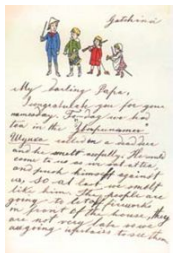 Gatchina
My darling Papa,
I congratulate you for your
namesday. To-day we had
tea in the
and he smelt awfully. He would
come to us as we sat at tea
and push himself against
us, so at last we smelt
like him. The people are
going to let off fireworks
in front of the house, they
are not very late so we
are going upstairs to see them